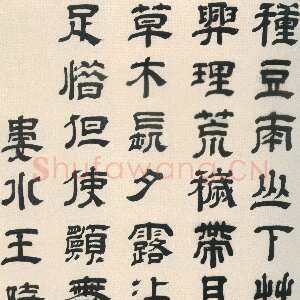 種豆南山下
興理荒穢帶月
草木長夕露沾
足惜但使願無
婁水王時
Shufawang.CN